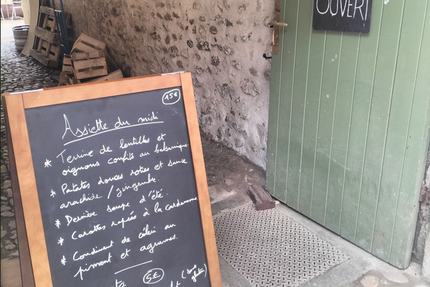 OUVERT
15€
Assiette du midi
* Terrine de lentilles et
oignons confits au balsamique
* Patates douces roties et sauce
arachide / gingembre.
* Dernière soupe d'été.
* Carottes rapées à la cardamome
* Condiment de céleri au
piment et agrumes.
5€